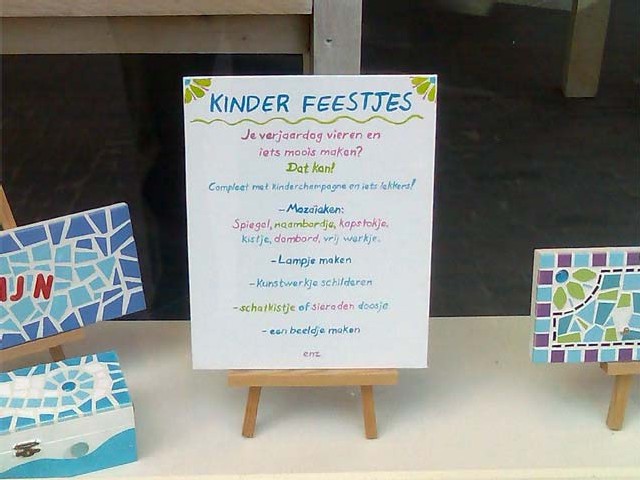 KINDER FEESTJES
Je verjaardag vieren en
iets moois maken?
Dat kan!
Compleet met kinderchampagne en iets lekkers!
- Mozaïeken:
Spiegel, naambordje, kapstokje,
kistje, dambord, vrij werkje.
- Lampje maken
- Kunstwerkje schilderen
- schatkistje of sieraden doosje
- een beeldje maken
enz.
IJN